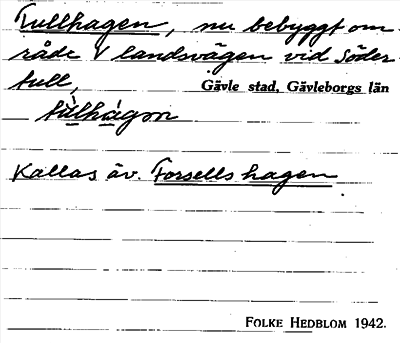 Tullhagen, nu bebyggt om-
råde V landsvägen vid Söder
tull,
Gävle stad, Gävleborgs län
tùlhàgon
Kallas äv. Forsells hagen
FOLKE HEDBLOM 1942.